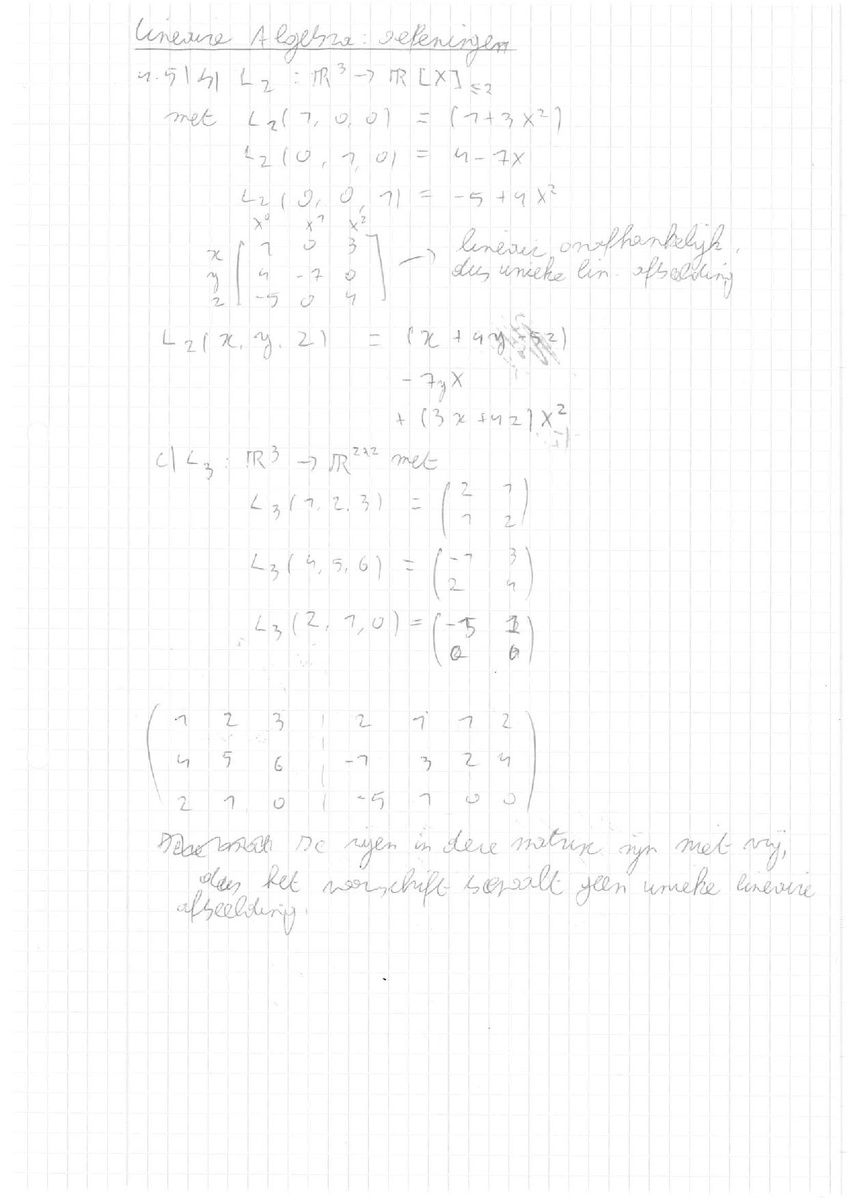 Lineaire Algebra: oefeningen
4.5 | b) L₂ : ℝ³ → ℝ[X]≤2
met L₂(1, 0, 0) = (1+3X²)
L₂(0, 1, 0) = 4-7X
L₂(0, 0, 1) = -5+4X²
X⁰ X¹ X²
x [ 1 0 3 ] → lineair onafhankelijk,
y [ 4 -7 0 ] dus unieke lin. afbeelding
z [ -5 0 4 ]
L₂(x, y, z) = (x + 4y - 5z)
- 7yX
+ (3x + 4z)X²
c) L₃ : ℝ³ → ℝ²ˣ² met
L₃(1, 2, 3) = ( 2 1
1 2 )
L₃(4, 5, 6) = ( -1 3
2 4 )
L₃(2, 1, 0) = ( -5 1
0 0 )
( 1 2 3 | 2 1 1 2
4 5 6 | -1 3 2 4
2 1 0 | -5 1 0 0 )
De rijen in deze matrix zijn niet vrij,
dus het voorschift bepaalt geen unieke lineaire
afbeelding.